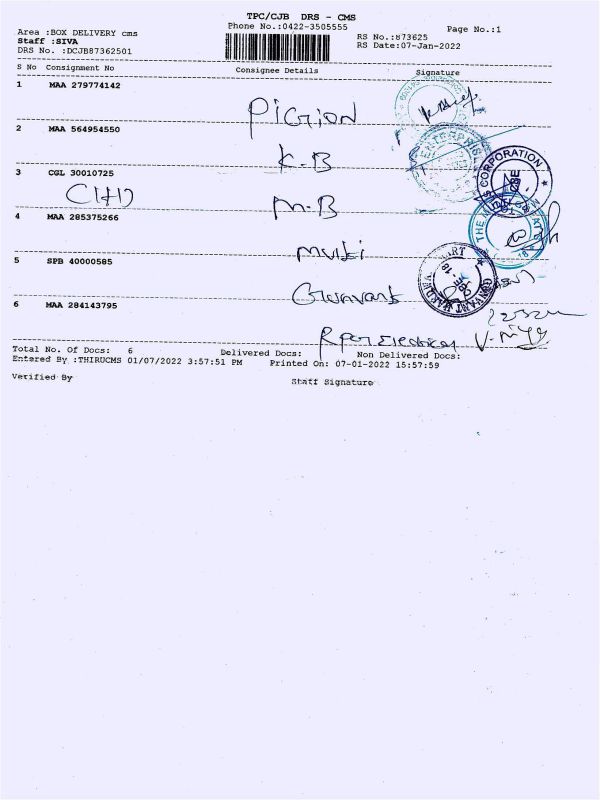 TPC/CJB DRS - CMS
Phone No.:0422-3505555
Page No.:1
Area :BOX DELIVERY cms
Staff :SIVA
DRS No. :DCJB87362501
RS No.:873625
RS Date:07-Jan-2022
S No Consignment No Consignee Details Signature
1 MAA 279774142
PIGION
2 MAA 564954550
K-B
3 CGL 30010725
M-B
4 MAA 285375266
Multi
5 SPB 40000585
6 MAA 284143795
ENTERPRISE
S CORPORATION
CBE
THE
CBE
18
Total No. Of Docs: 6 Delivered Docs: Non Delivered Docs:
Entered By :THIRUCMS 01/07/2022 3:57:51 PM Printed On: 07-01-2022 15:57:59
Verified By Staff Signature